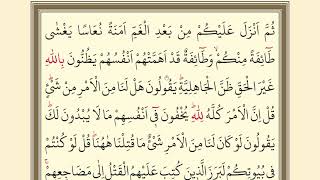 ثُمَّ اَنْزَلَ عَلَيْكُمْ مِنْ بَعْدِ الْغَمِّ اَمَنَةً نُعَاسًا يَغْشٰى
طَٓائِفَةً مِنْكُمْۙ وَطَٓائِفَةٌ قَدْ اَهَمَّتْهُمْ اَنْفُسُهُمْ يَظُنُّونَ بِاللّٰهِ
غَيْرَ الْحَقِّ ظَنَّ الْجَاهِلِيَّةِۜ يَقُولُونَ هَلْ لَنَا مِنَ الْاَمْرِ مِنْ شَيْءٍۜ
قُلْ اِنَّ الْاَمْرَ كُلَّهُ لِلّٰهِۜ يُخْفُونَ فٓي اَنْفُسِهِمْ مَا لَا يُبْدُونَ لَكَۜ
يَقُولُونَ لَوْ كَانَ لَنَا مِنَ الْاَمْرِ شَيْءٌ مَا قُتِلْنَا هٰهُنَاۜ قُلْ لَوْ كُنْتُمْ
فٓي بُيُوتِكُمْ لَبَرَزَ الَّذٖينَ كُتِبَ عَلَيْهِمُ الْقَتْلُ اِلٰى مَضَاجِعِهِمْۚ